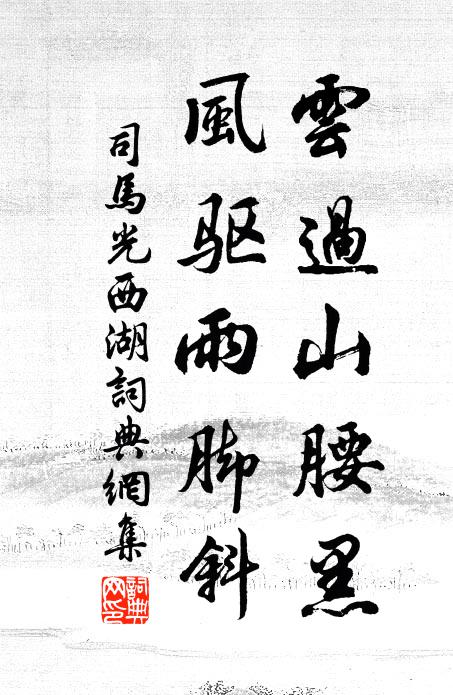 雲過山腰黑
風驱雨脚斜
司馬光西湖詞典網集
詞典網印